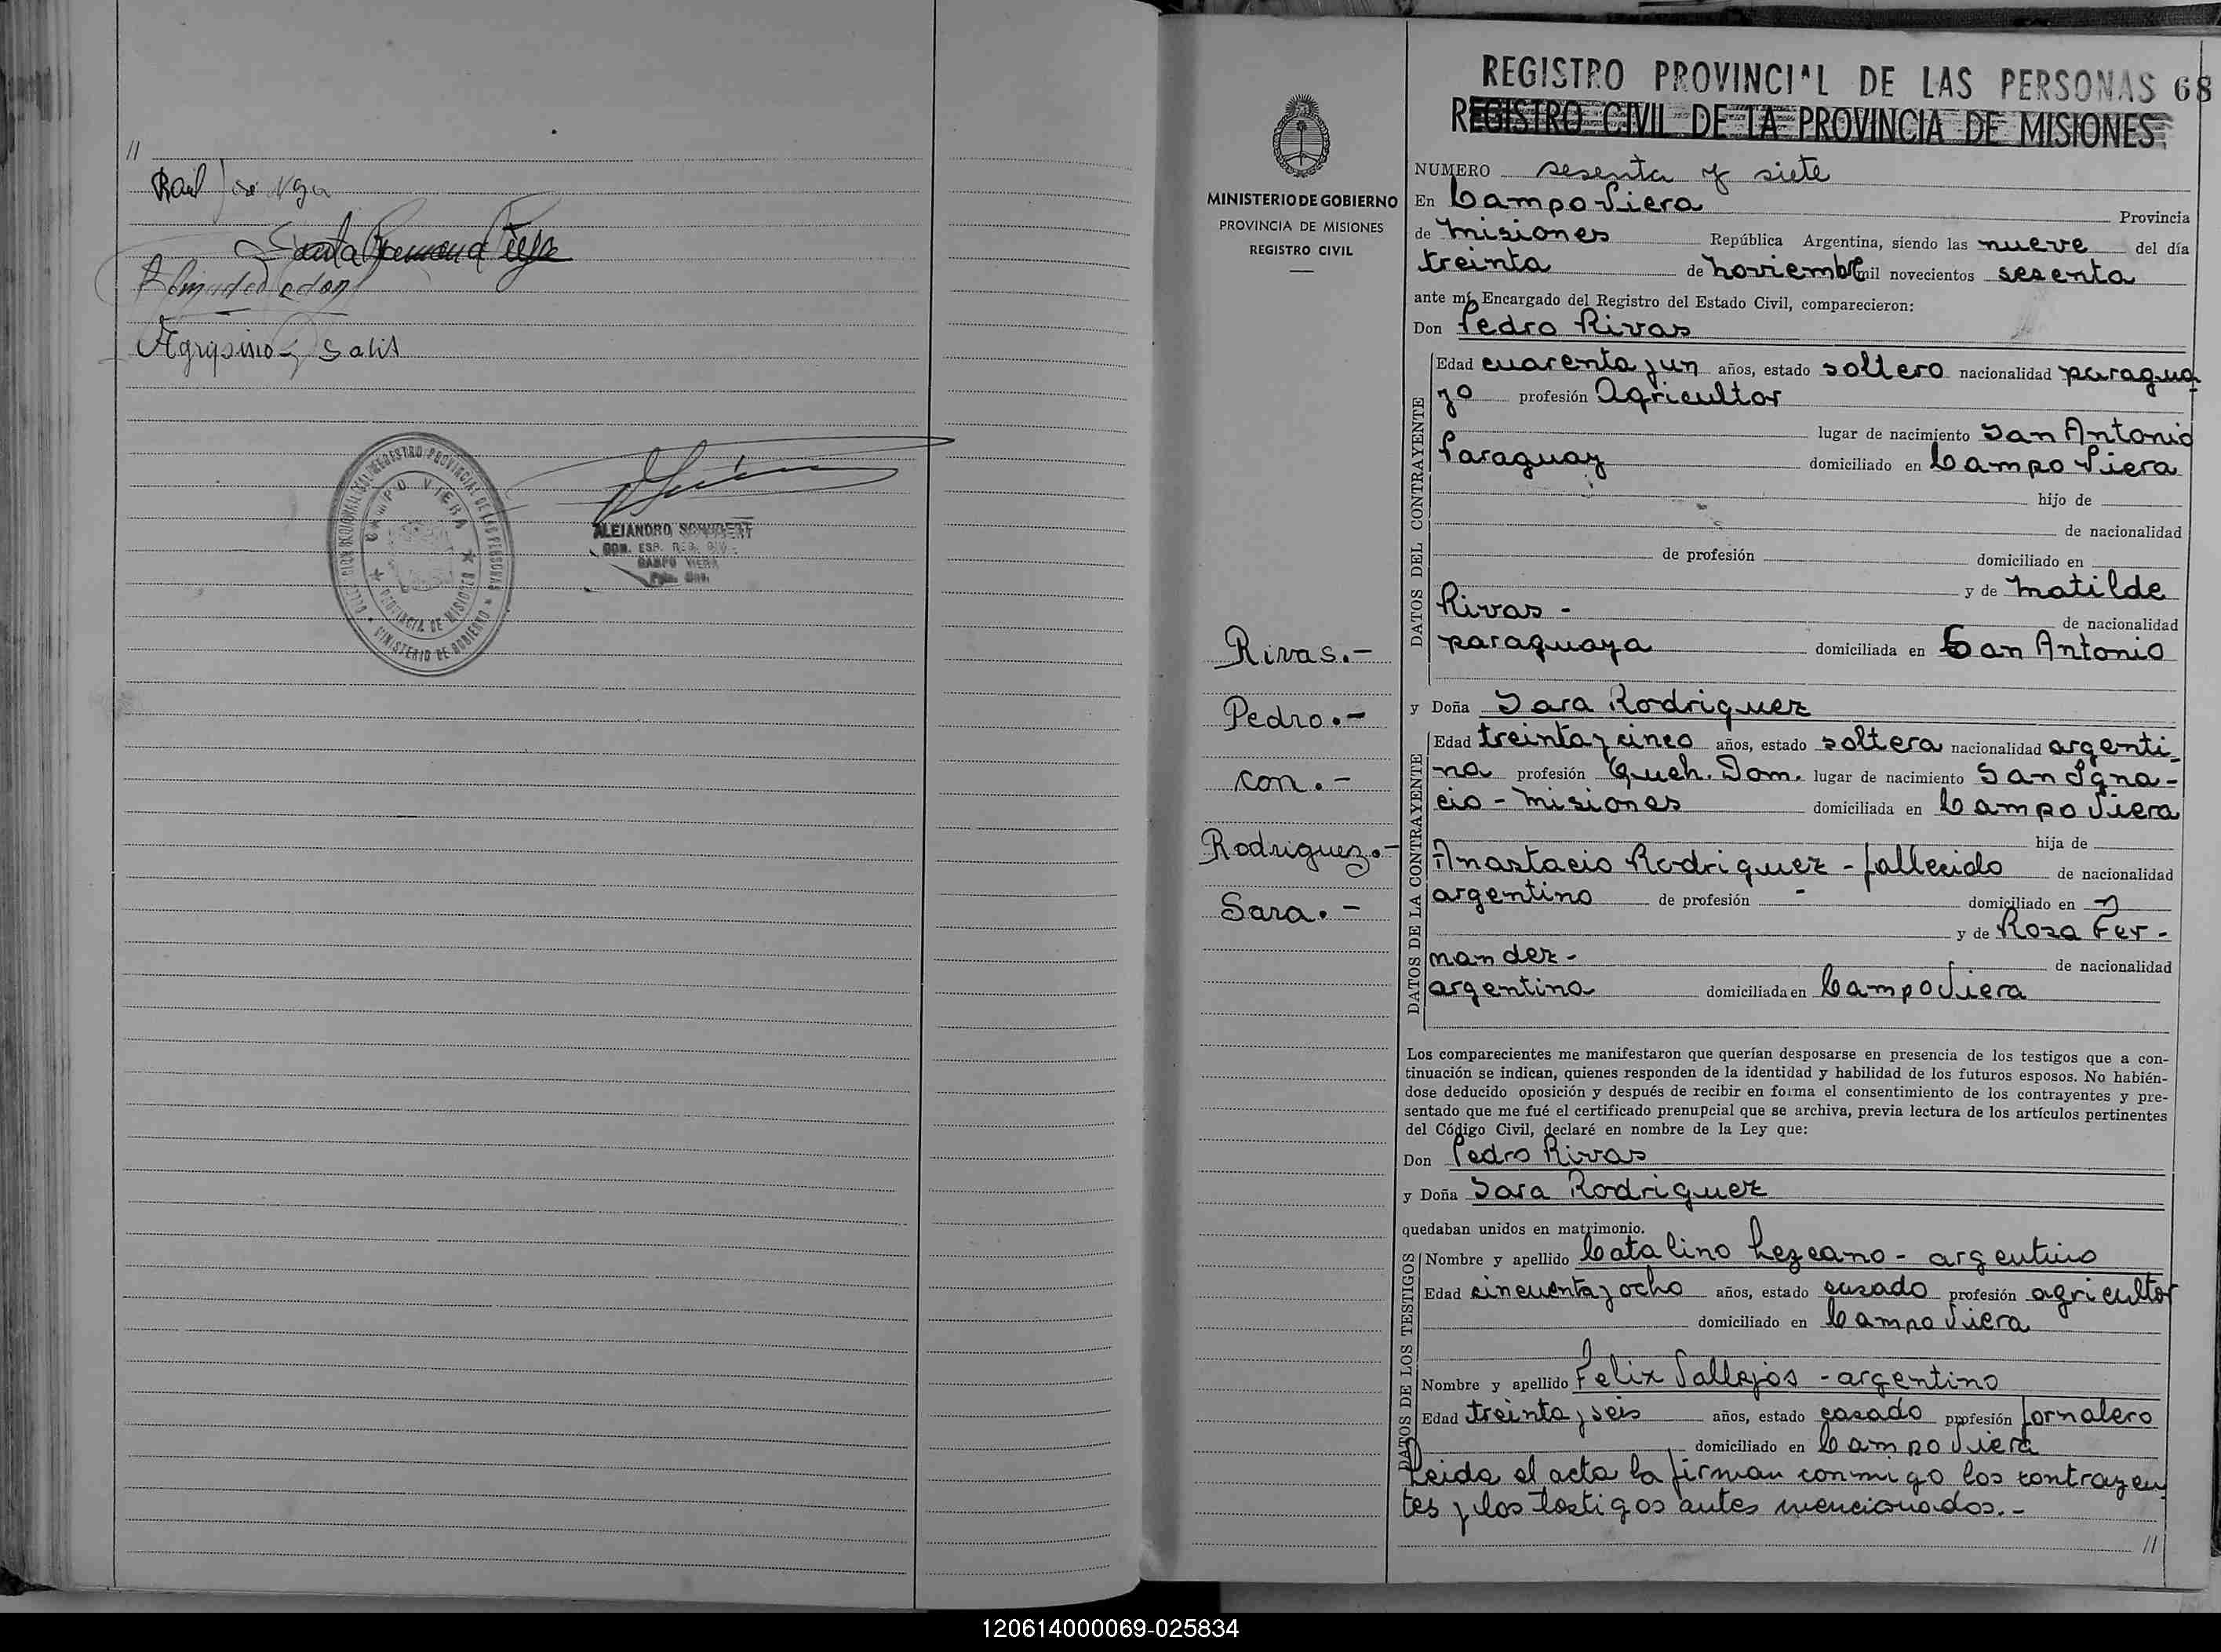 //
Raul José Vga
Agripino Salis
REGISTRO PROVINCIAL DE LAS PERSONAS
CAMPO VIERA
PROVINCIA DE MISIONES
MINISTERIO DE GOBIERNO
ALEJANDRO
CAMPO VIERA
REGISTRO PROVINCIAL DE LAS PERSONAS 68
REGISTRO CIVIL DE LA PROVINCIA DE MISIONES
MINISTERIO DE GOBIERNO
PROVINCIA DE MISIONES
REGISTRO CIVIL
Rivas.-
Pedro.-
con.-
Rodriguez.-
Sara.-
NUMERO sesenta y siete
En Campo Viera Provincia
de Misiones República Argentina, siendo las nueve del día
treinta de noviembre mil novecientos sesenta
ante mí, Encargado del Registro del Estado Civil, comparecieron:
Don Pedro Rivas
DATOS DEL CONTRAYENTE
Edad cuarenta y un años, estado soltero nacionalidad paragua
yo profesión Agricultor
lugar de nacimiento San Antonio
Paraguay domiciliado en Campo Viera
hijo de
de nacionalidad
de profesión domiciliado en
y de Matilde
Rivas - de nacionalidad
paraguaya domiciliada en San Antonio
y Doña Sara Rodriguez
DATOS DE LA CONTRAYENTE
Edad treinta y cinco años, estado soltera nacionalidad argenti-
na profesión Queh. Dom. lugar de nacimiento San Igna-
cio - Misiones domiciliada en Campo Viera
hija de
Anastacio Rodriguez - fallecido de nacionalidad
argentino de profesión - domiciliado en
y de Rosa Fer-
nandez - de nacionalidad
argentina domiciliada en Campo Viera
Los comparecientes me manifestaron que querían desposarse en presencia de los testigos que a con-
tinuación se indican, quienes responden de la identidad y habilidad de los futuros esposos. No habién-
dose deducido oposición y después de recibir en forma el consentimiento de los contrayentes y pre-
sentado que me fué el certificado prenupcial que se archiva, previa lectura de los artículos pertinentes
del Código Civil, declaré en nombre de la Ley que:
Don Pedro Rivas
y Doña Sara Rodriguez
quedaban unidos en matrimonio.
DATOS DE LOS TESTIGOS
Nombre y apellido Catalino Lezcano - argentino
Edad cincuenta y ocho años, estado casado profesión agricultor
domiciliado en Campo Viera
Nombre y apellido Felix Vallejos - argentino
Edad treinta y seis años, estado casado profesión Jornalero
domiciliado en Campo Viera
Leida el acta la firman conmigo los contrayen
tes y los testigos antes mencionados.-
//
120614000069-025834